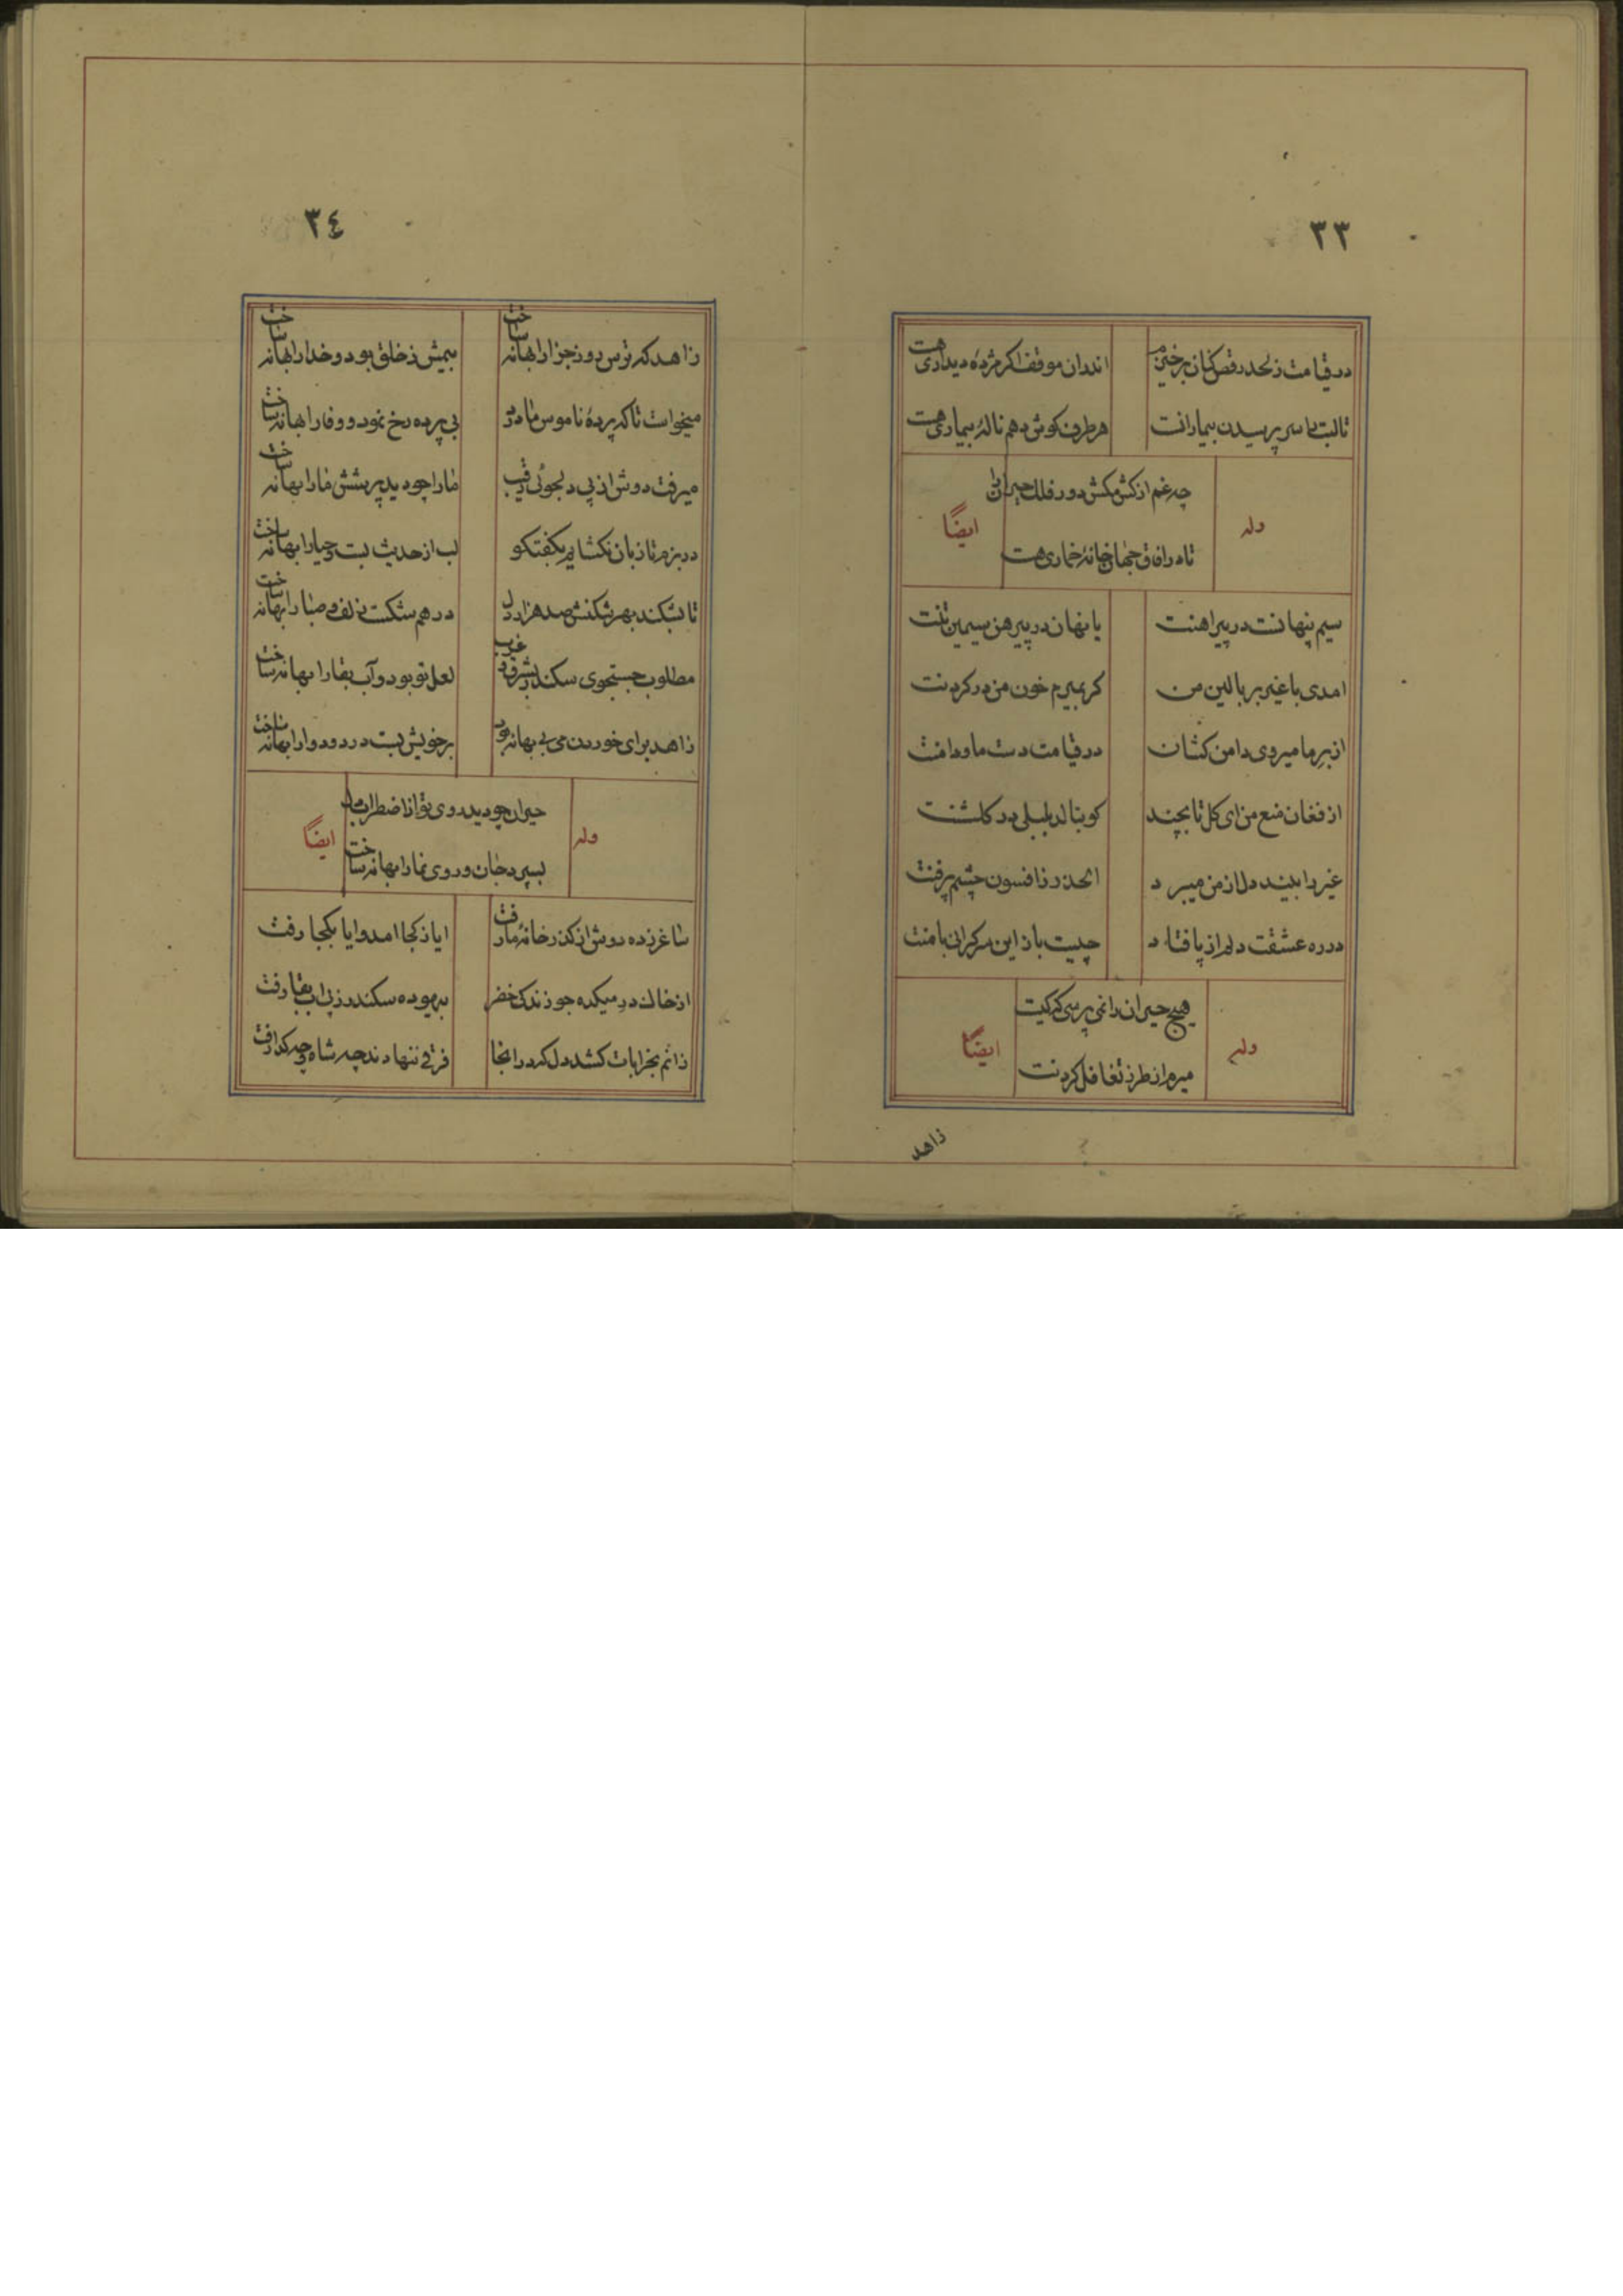 ٣٣
در قیامت ز لحد رقص کنان برخیزم اندران موقف اگر مژدهٔ دیداری هست
تا لبت بر سر پرسیدن بیمارانت هر طرف کوش دهم نالهٔ بیماری هست
چه غم از کش مکش دور فلک حیران را
وله ایضاً
تا در افاق جهان خانهٔ خماری هست
سیم پنهانست در پیراهنت یا نهان در پیرهن سیمین تنت
امدی با غیر بر بالین من کر بمیرم خون من در کردنت
از برِ ما میروی دامن کشان در قیامت دست ما و دامنت
از فغان منع من ای کل تا بچند کو بنالد بلبلی در کلشنت
غیر را بیند دل از من میبرد الحذر ز افسون چشم پرفنت
در ره عشقت دلم از پا فتاد چیست باز این سرکرانی با منت
هیچ حیران را نمی پرسی که کیست
وله ایضاً
میرم از طرز تغافل کردنت
زاهد
٣٤
زاهد که ترس روز جزا را بهانه ساخت بیمش ز خلق بود و خدا را بهانه ساخت
میخواست تا که پردهٔ ناموس ما درد بی پرده رخ نمود و وفا را بهانه ساخت
میرفت دوش از پی دلجوئی رقیب ما را چو دید پرسش ما را بهانه ساخت
در بزم تا زبان نکشایم بکفتکو لب از حدیث بست و حیا را بهانه ساخت
تا بشکند بهر شکنش صد هزار دل درهم شکست زلف و صبا را بهانه ساخت
مطلوب جستجوی سکندر بشرق و غرب لعل تو بود و آب بقا را بهانه ساخت
زاهد برای خوردن می بی بهانه بود بر خویش بست درد و دوا را بهانه ساخت
حیران چو دید روی تو از اضطراب دل
وله ایضاً
بسپرد جان و روی نما را بهانه ساخت
ساغر زده دوش از کذر خانهٔ ما رفت ایا ز کجا امد و ایا بکجا رفت
از خاک در میکده جو زندکی خضر بیهوده سکندر ز پی اب بقا رفت
زانم بخرابات کشد دل که در انجا فرقی ننهادند چه شاه و چه کدا رفت